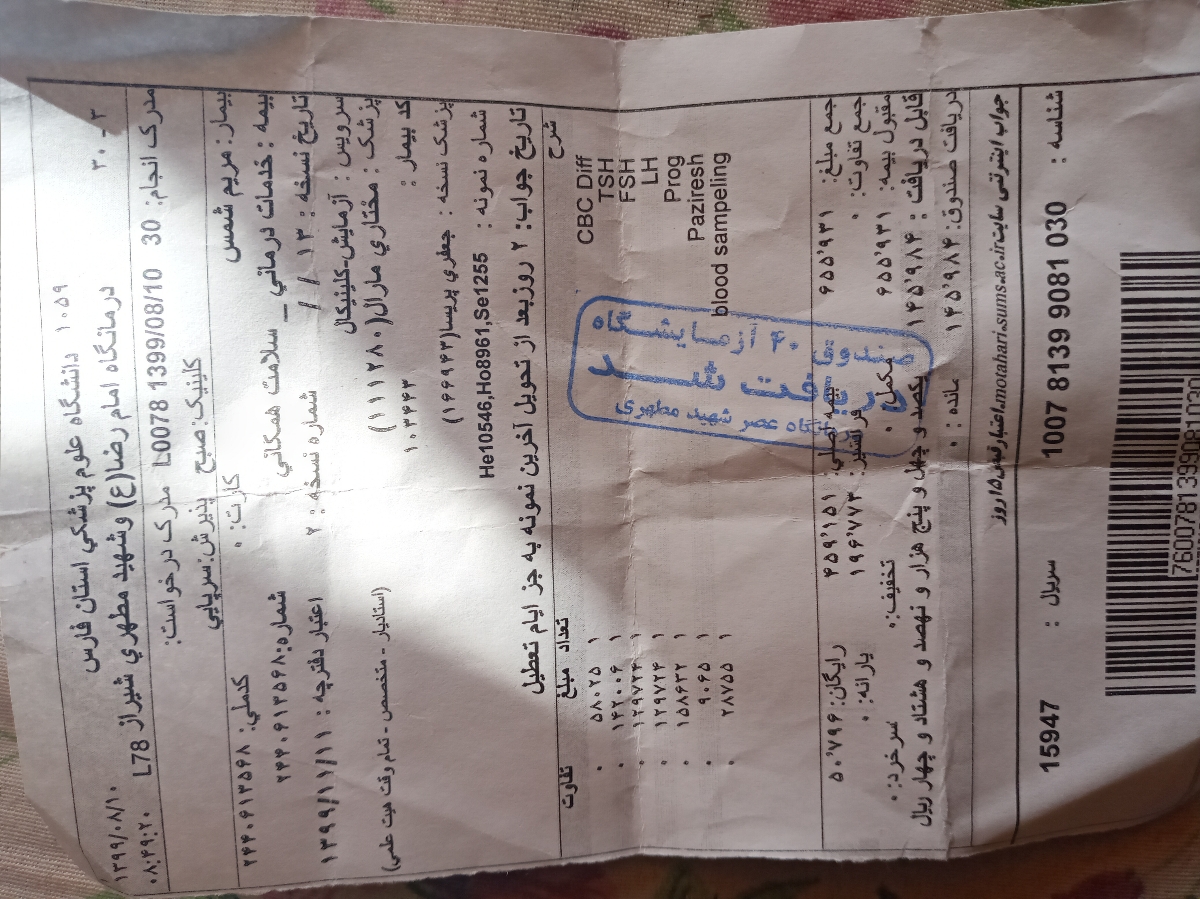 ۱۳۹۹/۰۸/۱۰ ۱۰۵۹ دانشگاه علوم پزشکي استان فارس ۳۰-۳
۰۸:۴۹:۲۰ درمانگاه امام رضا(ع) وشهید مطهري شیراز L78
مدرک انجام: 30 1399/08/10 L0078 مدرک درخواست:
بیمار: مریم شمس کلینیک:صبح پذیرش:سرپایي
بیمه : خدمات درماني - سلامت همگاني کارت: ۰ شماره:۲۴۴۰۶۱۳۵۶۸ کدملي: ۲۴۴۰۶۱۳۵۶۸
تاریخ نسخه : ۱۳ / / شماره نسخه : ۲ اعتبار دفترچه : ۱۳۹۹/۱۱/۱۱
سرویس : آزمایش-کلینیکال
پزشک : مختاري مارال(۱۱۱۲۸۰) (استادیار - متخصص - تمام وقت هیت علمي)
کد بیمار : ۱۰۳۴۴۳
پزشک نسخه : جعفري پریسا(۱۶۶۹۴۳)
شماره نمونه : He10546,Ho8961,Se1255
تاریخ جواب: ۲ روزبعد از تحویل آخرین نمونه به جز ایام تعطیل
شرح تعداد مبلغ تفاوت
CBC Diff ۱ ۵۸۰۲۵ ۰
TSH ۱ ۱۴۲۰۰۶ ۰
FSH ۱ ۱۲۹۷۲۴ ۰
LH ۱ ۱۲۹۷۲۴ ۰
Prog ۱ ۱۵۸۶۳۲ ۰
Paziresh ۱ ۹۰۶۵ ۰
blood sampeling ۱ ۲۸۷۵۵ ۰
صندوق ۴۰ آزمایشگاه
دریافت شد
درمانگاه عصر شهید مطهري
جمع مبلغ: ۶۵۵٬۹۳۱ بیمه اصلي: ۴۵۹٬۱۵۱ رایگان: ۵۰٬۷۹۶
جمع تفاوت: ۰ مکمل: ۰ فرانشیز: ۱۹۶٬۷۷۳ تخفیف: ۰ یارانه: ۰
مقبول بیمه: ۶۵۵٬۹۳۱ سرخرد: ۰
قابل دریافت : ۱۴۵٬۹۸۴ یکصد و چهل و پنج هزار و نهصد و هشتاد و چهار ریال
دریافت صندوق: ۱۴۵٬۹۸۴ مانده : ۰
جواب اینترنتي سایت motahari.sums.ac.ir اعتبار قبض ۱۵ روز
شناسه : 1007 8139 9081 030 سریال : 15947